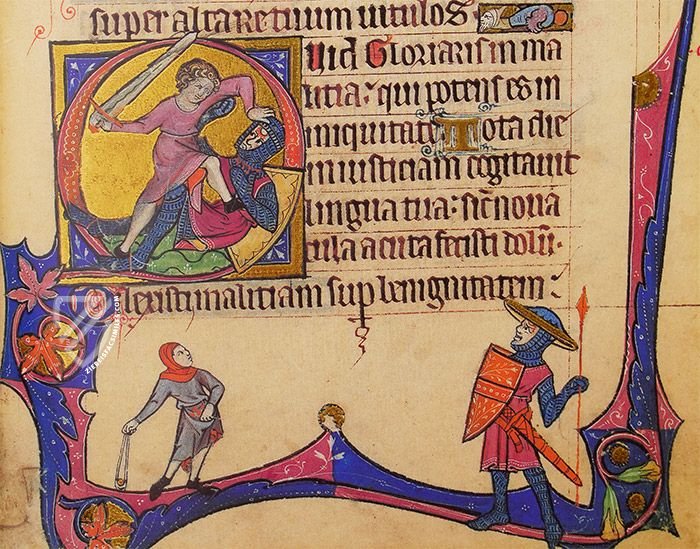 super altare tuum uitulos
Quid Gloriaris in ma
litia: qui potens es in
iniquitate Tota die
iniusticiam cogitauit
lingua tua: sic̃ noua
cula acuta fecisti dolū.
Dilexisti malitiam sup benignitatem:
ZIEREISFACSIMILES.COM